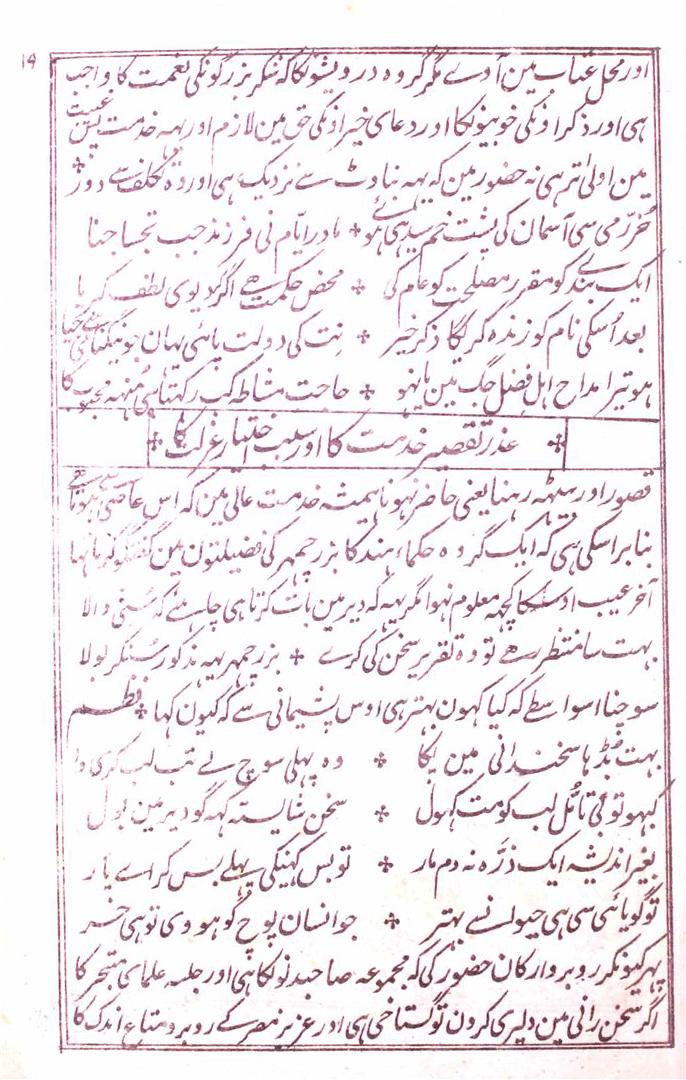 ۱۹
اور محل عتاب مین آوے مگر گروہ درویشونکا کہ شکر بزرگونکی نعمت کا واجب
ہی اور ذکر اونکی خوبیونکا اور دعای خیر اونکی حق مین لازم اور یہہ خدمت غیبت
مین اولیٰ تر ہی نہ حضور مین کہ یہہ بناوٹ سے نزدیک ہی اور وہ تکلف سے دور ٭
خرّمی سی آسمان کی پشت خم سیدہی ہو ٭ مادر ایّام نی فرزند جب تجسا جنا
ایک بندے کو مقرر مصلحت کو عام کی ٭ محض حکمت ہے اگر دیوی لطف کبریا
بعد اُسکی نام کو زندہ کریگا ذکر خیر ٭ نِت کی دولت پائی یہان جو نیکنامی سے جیا
ہو تیرا مداح اہل فضل جگ مین یا نہو ٭ حاجت مشاطہ کب رکہتا ہی مُنہہ محبوب کا
٭ عذر تقصیر خدمت کا اور سبب اختیار عزلت کا ٭
قصور اور بیٹھہ رہنا یعنی حاضر نہونا ہمیشہ خدمت عالی مین کہ اس عاصی سے ہوتا ہے
بنابر اسکی ہی کہ ایک گروہ حکماء ہند کا بزرجمہر کی فضیلتون مین گفتگو کرتا تہا
آخر عیب اوسکا کچہہ معلوم نہوا مگر یہہ کہ دیر مین بات کرتا ہی چاہئے کہ سُننی والا
بہت سا منتظر رہے تو وہ تقریر سخن کی کرے ٭ بزرجمہر یہہ مذکور سُنکر بولا
سوچنا اسواسطے کہ کیا کہون بہتر ہی اوس پشیمانی سے کہ کیون کہا ٭ نظم
بہت بُڈہا سخندانی مین پکا ٭ وہ پہلی سوچ لے تب لب کری وا
کبہو تو بی تأمّل لب کو مت کہول ٭ سخن شایستہ کہہ گو دیر مین بول
بغیر اندیشہ ایک ذرّہ نہ دم مار ٭ تو بس کہنیکی پہلے بس کر اے یار
تو گویائی سی ہی حیوانسے بہتر ٭ جو انسان پوچ گو ہووی تو ہی خر
پہر کیونکر روبرو ارکان حضور کی کہ مجموعہ صاحبدلونکا ہی اور جلسہ علمای متبحر کا
اگر سخن رانی مین دلیری کرون تو گستاخی ہی اور عزیز مصر کے روبرو متاع اندک کا